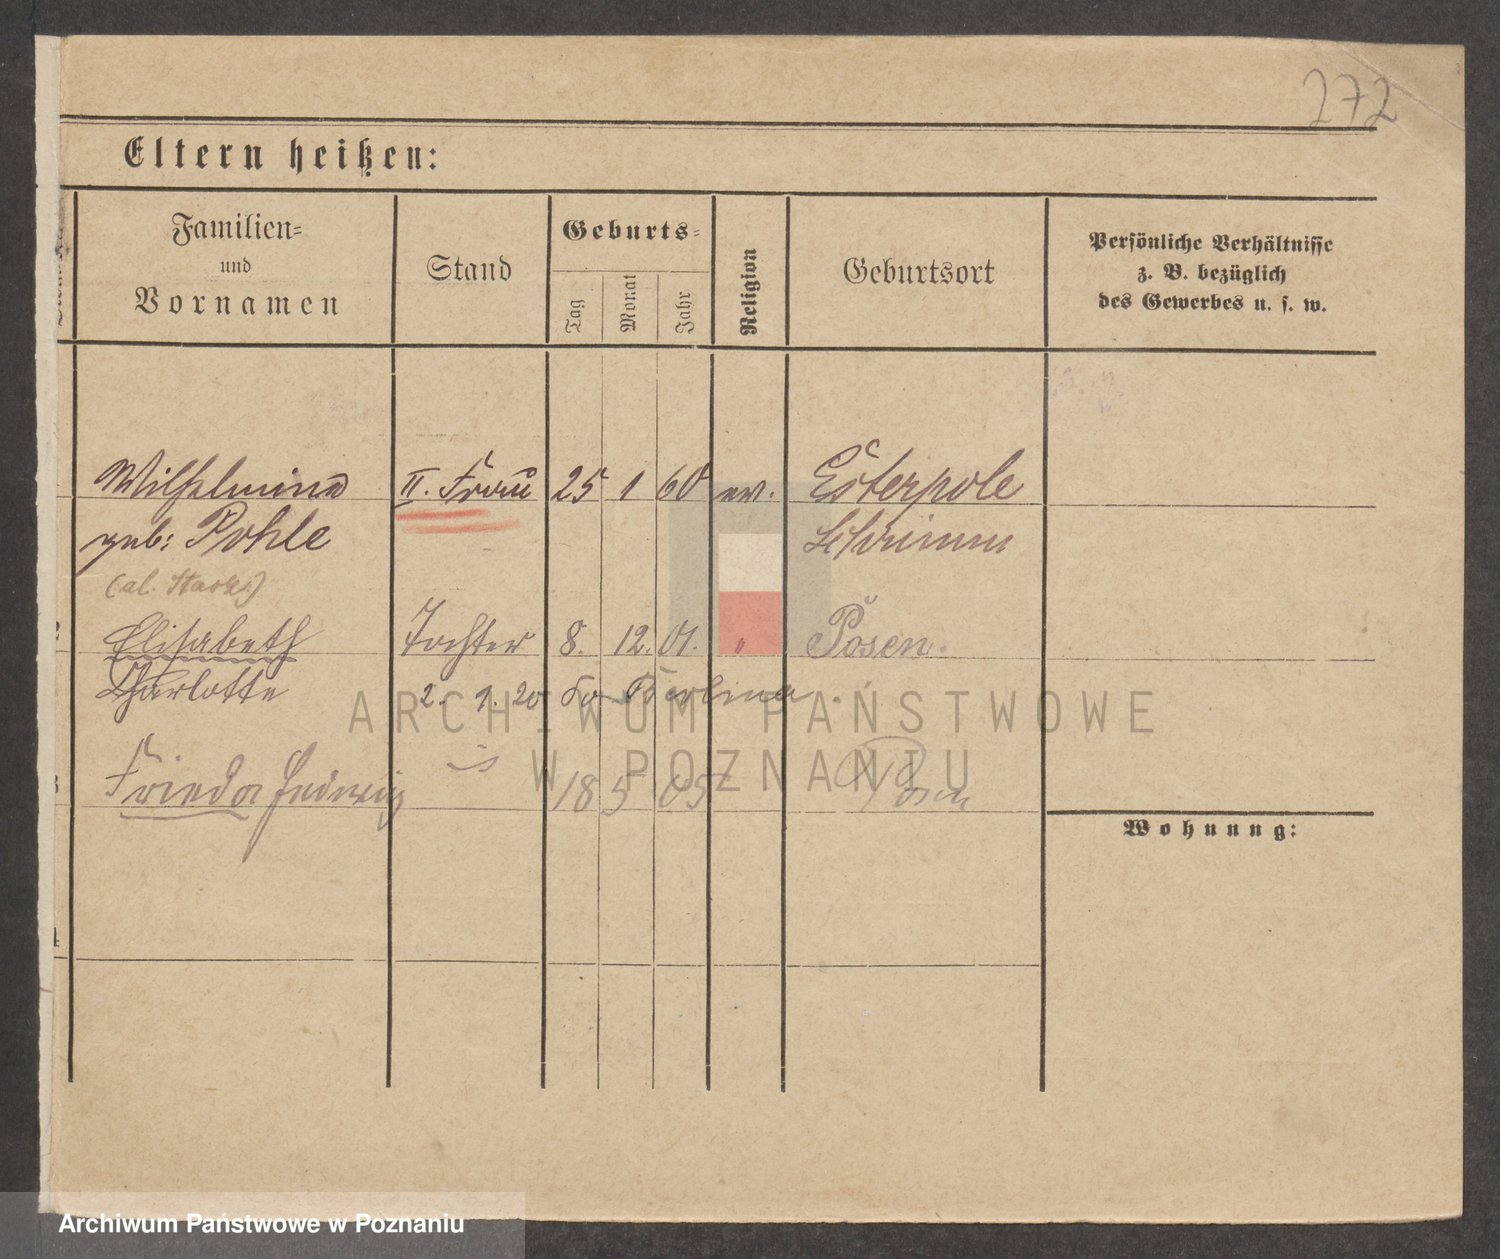 272
Eltern heißen:
Familien=
und
Vornamen
Stand
Geburts=
Tag
Monat
Jahr
Religion
Geburtsort
Persönliche Verhältnisse
z. B. bezüglich
des Gewerbes u. s. w.
Wilhelmine II. Frau 25 1 60 ev. Esterpole
geb: Pohle Schrimm
Elisabeth Tochter 8. 12. 01. " Posen.
Charlotte 2. 9. 20 Berlin
Frieda Hedwig 18 5 05 Posen
Wohnung:
4
ARCHIWUM PAŃSTWOWE
W POZNANIU
Archiwum Państwowe w Poznaniu